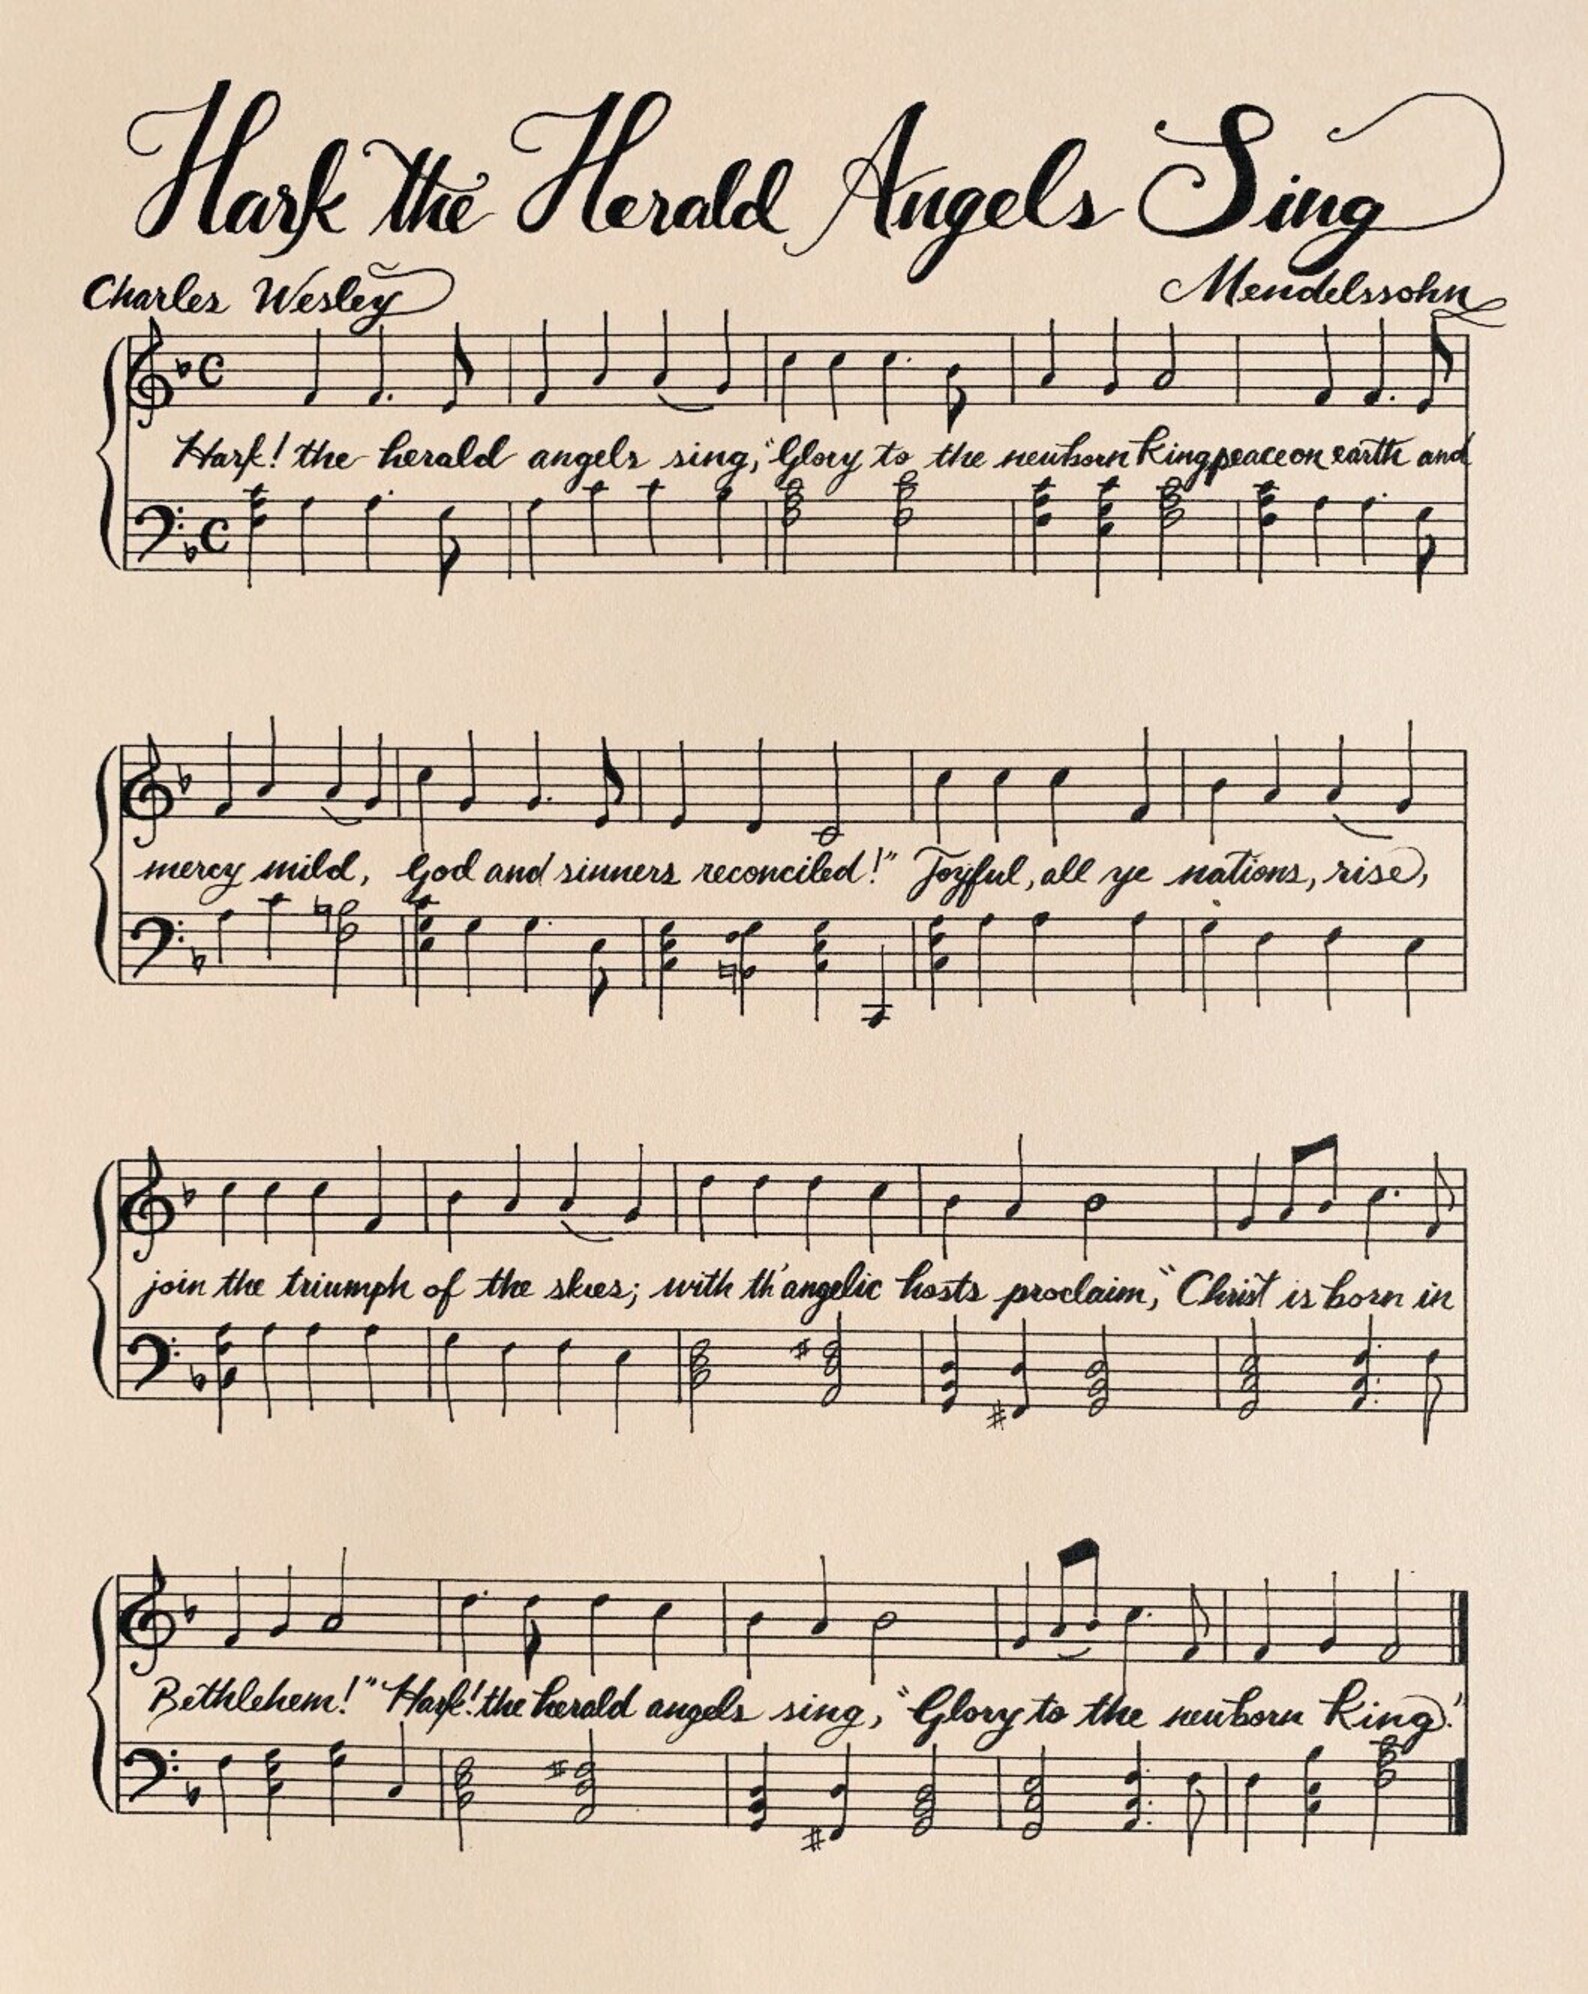 Hark the Herald Angels Sing
Charles Wesley Mendelssohn
Hark! the herald angels sing, "Glory to the newborn King peace on earth and
mercy mild, God and sinners reconciled!" Joyful, all ye nations, rise,
join the triumph of the skies; with th'angelic hosts proclaim, "Christ is born in
Bethlehem!" Hark! the herald angels sing, "Glory to the newborn King."